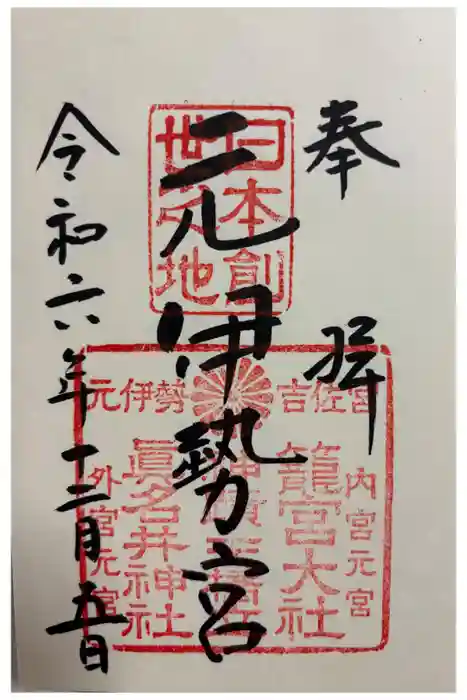 奉拝
元伊勢宮
令和六年十二月五日
日本創
世之地
吉佐宮
元伊勢
内宮元宮
籠宮大社
眞名井神社
外宮元宮